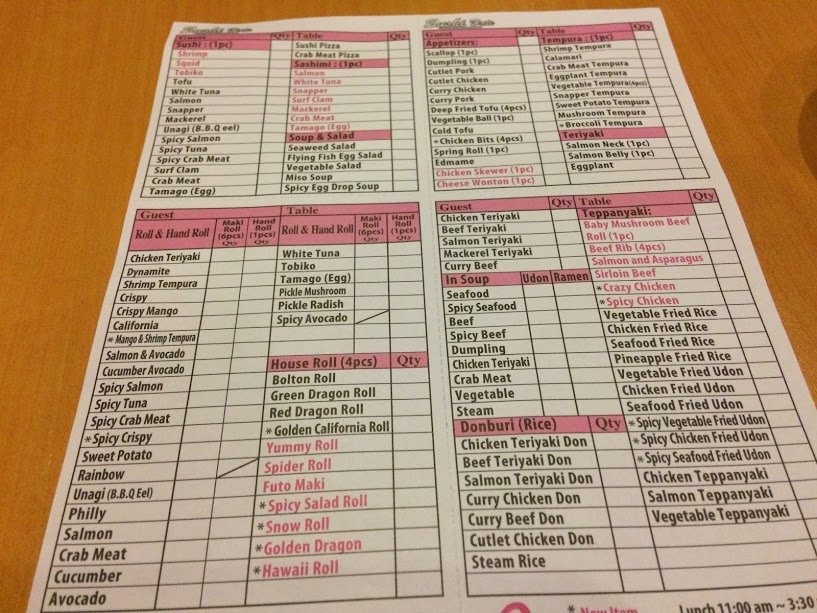 Guest Qty Table Qty
Sushi : (1pc)
Shrimp
Squid
Tobiko
Tofu
White Tuna
Salmon
Snapper
Mackerel
Unagi (B.B.Q eel)
Spicy Salmon
Spicy Tuna
Spicy Crab Meat
Surf Clam
Crab Meat
Tamago (Egg)
Sushi Pizza
Crab Meat Pizza
Sashimi : (1pc)
Salmon
White Tuna
Snapper
Surf Clam
Mackerel
Crab Meat
Tamago (Egg)
Soup & Salad
Seaweed Salad
Flying Fish Egg Salad
Vegetable Salad
Miso Soup
Spicy Egg Drop Soup
Guest Qty Table Qty
Appetizers:
Scallop (1pc)
Dumpling (1pc)
Cutlet Pork
Cutlet Chicken
Curry Chicken
Curry Pork
Deep Fried Tofu (4pcs)
Vegetable Ball (1pc)
Cold Tofu
* Chicken Bits (4pcs)
Spring Roll (1pc)
Edmame
Chicken Skewer (1pc)
Cheese Wonton (1pc)
Tempura : (1pc)
Shrimp Tempura
Calamari
Crab Meat Tempura
Eggplant Tempura
Vegetable Tempura(4pcs)
Snapper Tempura
Sweet Potato Tempura
Mushroom Tempura
* Broccoli Tempura
Teriyaki
Salmon Neck (1pc)
Salmon Belly (1pc)
Eggplant
Guest Table
Roll & Hand Roll Maki Roll (6pcs) Qty Hand Roll (1pcs) Qty Roll & Hand Roll Maki Roll (6pcs) Qty Hand Roll (1pcs) Qty
Chicken Teriyaki
Dynamite
Shrimp Tempura
Crispy
Crispy Mango
California
* Mango & Shrimp Tempura
Salmon & Avocado
Cucumber Avocado
Spicy Salmon
Spicy Tuna
Spicy Crab Meat
* Spicy Crispy
Sweet Potato
Rainbow
Unagi (B.B.Q Eel)
Philly
Salmon
Crab Meat
Cucumber
Avocado
White Tuna
Tobiko
Tamago (Egg)
Pickle Mushroom
Pickle Radish
Spicy Avocado
House Roll (4pcs) Qty
Bolton Roll
Green Dragon Roll
Red Dragon Roll
* Golden California Roll
Yummy Roll
Spider Roll
Futo Maki
* Spicy Salad Roll
* Snow Roll
* Golden Dragon
* Hawaii Roll
Guest Qty Table Qty
Chicken Teriyaki
Beef Teriyaki
Salmon Teriyaki
Mackerel Teriyaki
Curry Beef
In Soup Udon Ramen
Seafood
Spicy Seafood
Beef
Spicy Beef
Dumpling
Chicken Teriyaki
Crab Meat
Vegetable
Steam
Donburi (Rice) Qty
Chicken Teriyaki Don
Beef Teriyaki Don
Salmon Teriyaki Don
Curry Chicken Don
Curry Beef Don
Cutlet Chicken Don
Steam Rice
Teppanyaki:
Baby Mushroom Beef
Roll (1pc)
Beef Rib (4pcs)
Salmon and Asparagus
Sirloin Beef
* Crazy Chicken
* Spicy Chicken
Vegetable Fried Rice
Chicken Fried Rice
Seafood Fried Rice
Pineapple Fried Rice
Vegetable Fried Udon
Chicken Fried Udon
Seafood Fried Udon
* Spicy Vegetable Fried Udon
* Spicy Chicken Fried Udon
* Spicy Seafood Fried Udon
Chicken Teppanyaki
Salmon Teppanyaki
Vegetable Teppanyaki
* New Item Lunch 11:00 am ~ 3:30